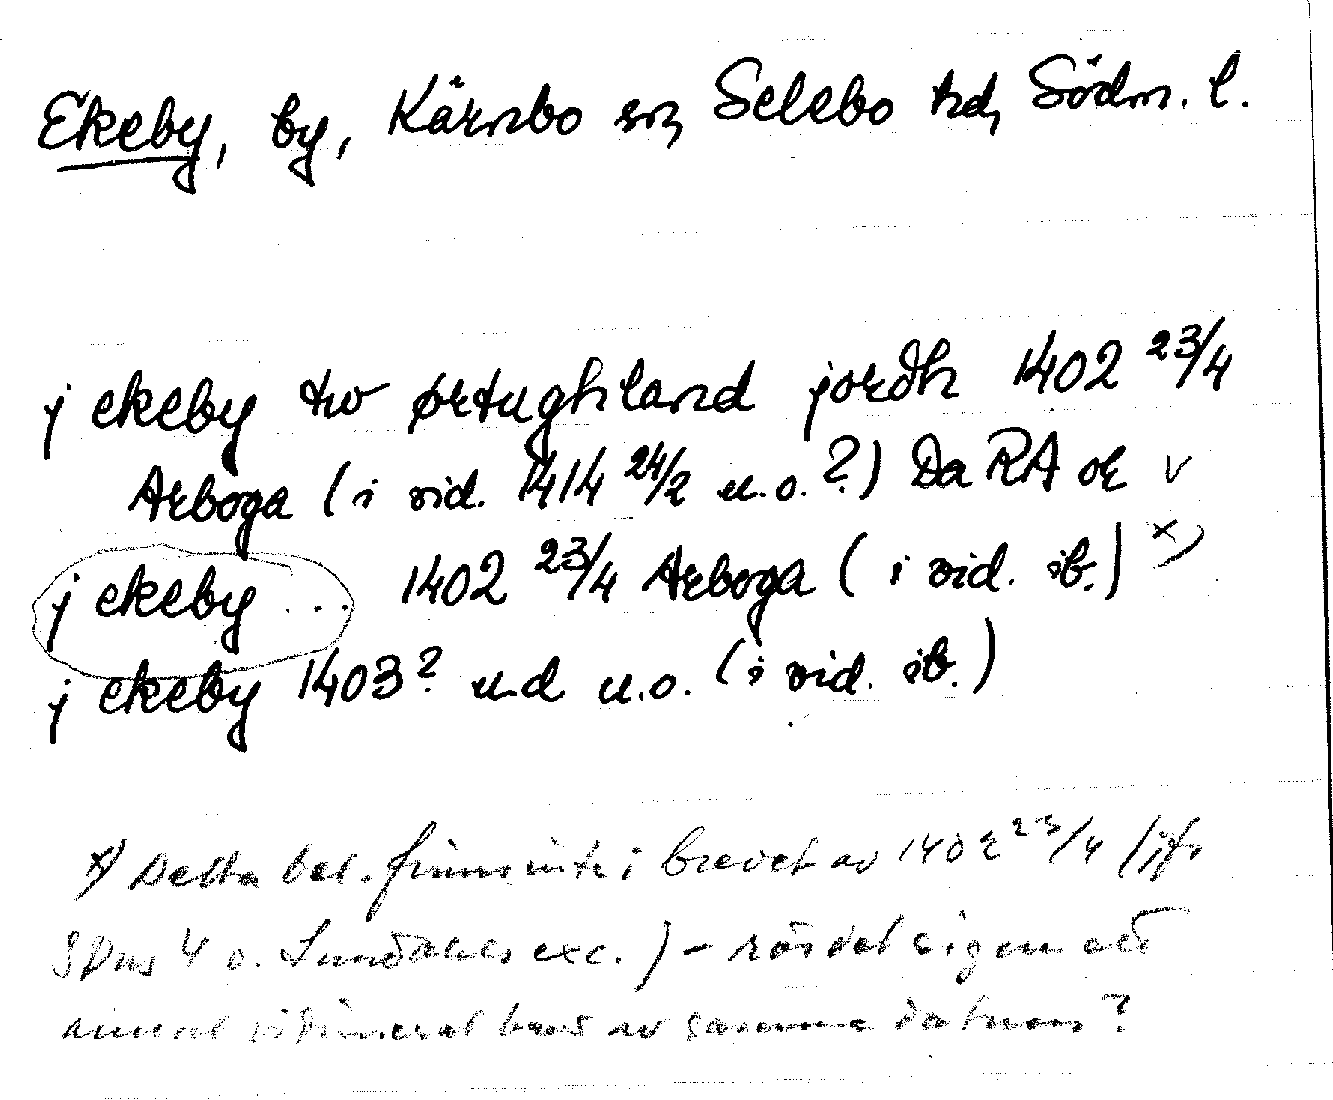 Ekeby, by, Kärnbo sn, Selebo hd, Södm. l.
j ekeby tw ørtughland jordh 1402 23/4
Arboga (i vid. 1414 24/2 u.o.?) Da RA or v
j ekeby ... 1402 23/4 Arboga (i vid. ib.) x)
j ekeby 1403? u.d u.o. (i vid. ib.)
x) Detta bel. finns inte i brevet av 1402 23/4 (jfr
SDns 4 o. Lundahls exc.) – rör det sig om ett
annat vidimerat brev av samma datum?